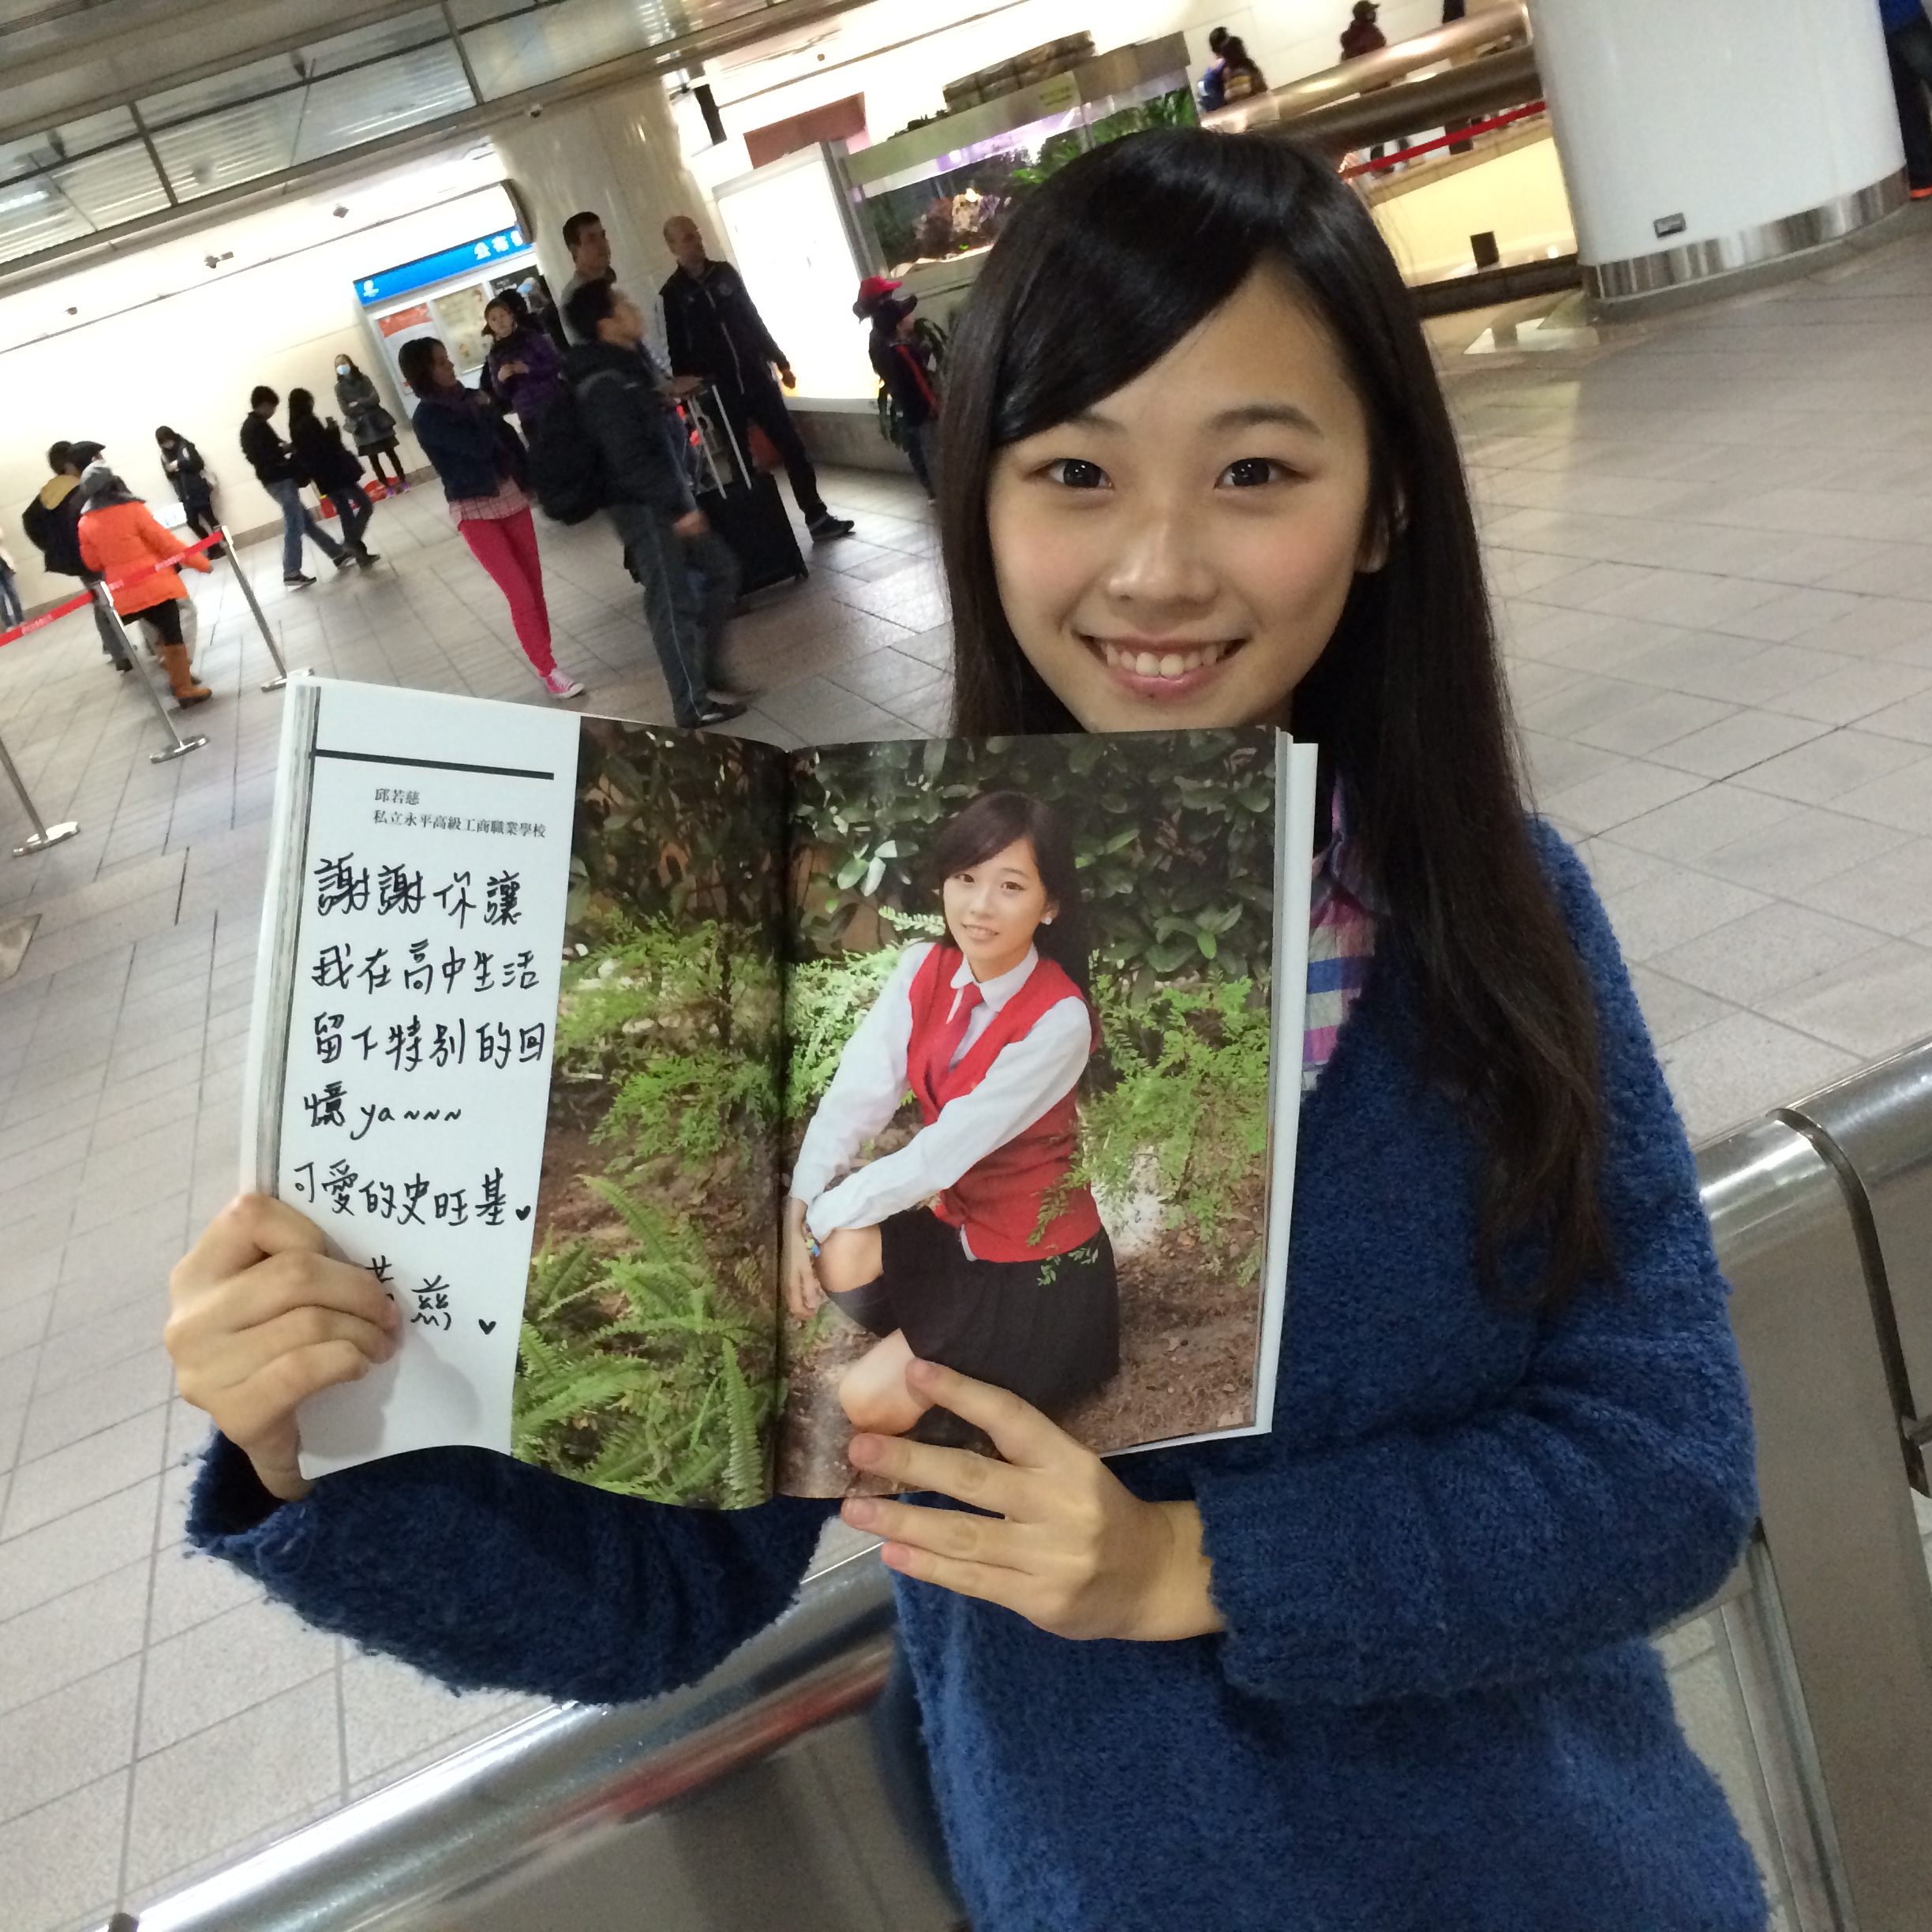 邱若慈
私立永平高級工商職業學校
謝謝你讓
我在高中生活
留下特別的回
憶 ya~~~
可愛的史旺基♥
慈 ♥